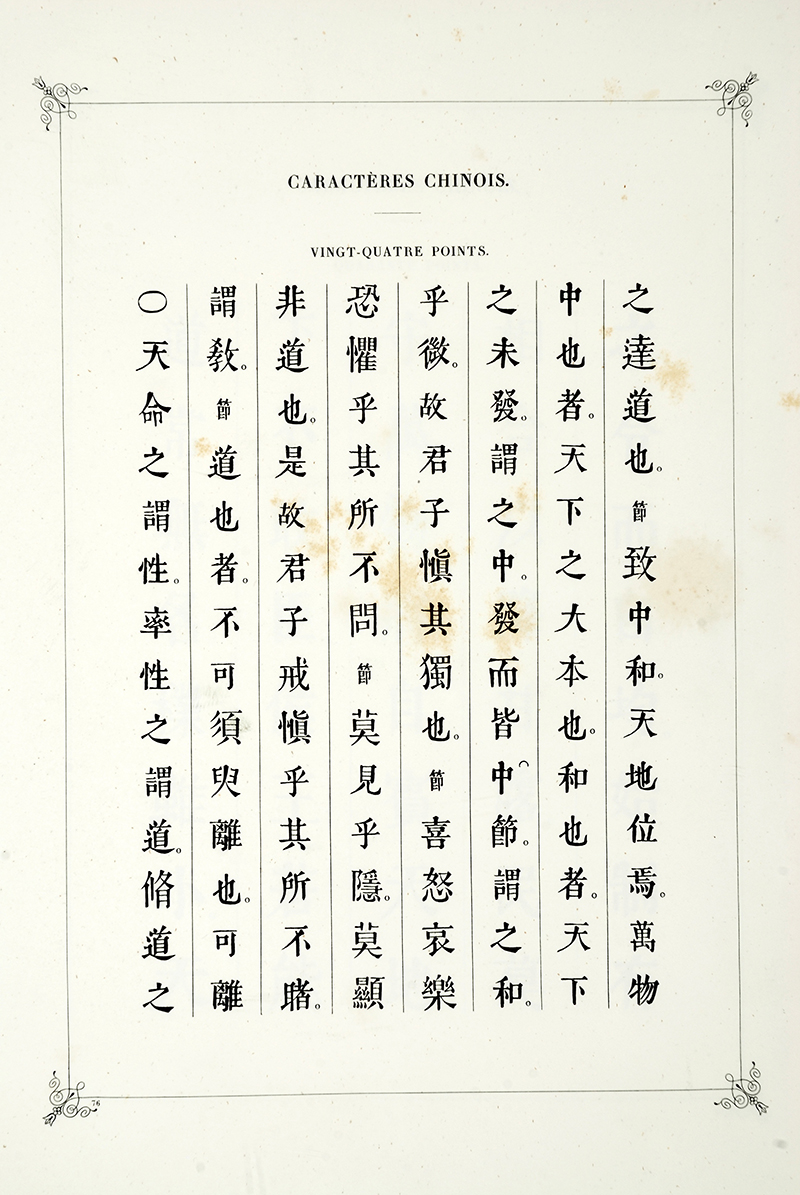 CARACTÈRES CHINOIS.
VINGT-QUATRE POINTS.
○天命之謂性。率性之謂道。脩道之
謂敎。節道也者。不可須臾離也。可離
非道也。是故君子戒愼乎其所不睹。
恐懼乎其所不問。節莫見乎隱。莫顯
乎微。故君子愼其獨也。節喜怒哀樂
之未發。謂之中。發而皆中節。謂之和。
中也者。天下之大本也。和也者。天下
之達道也。節致中和。天地位焉。萬物
76